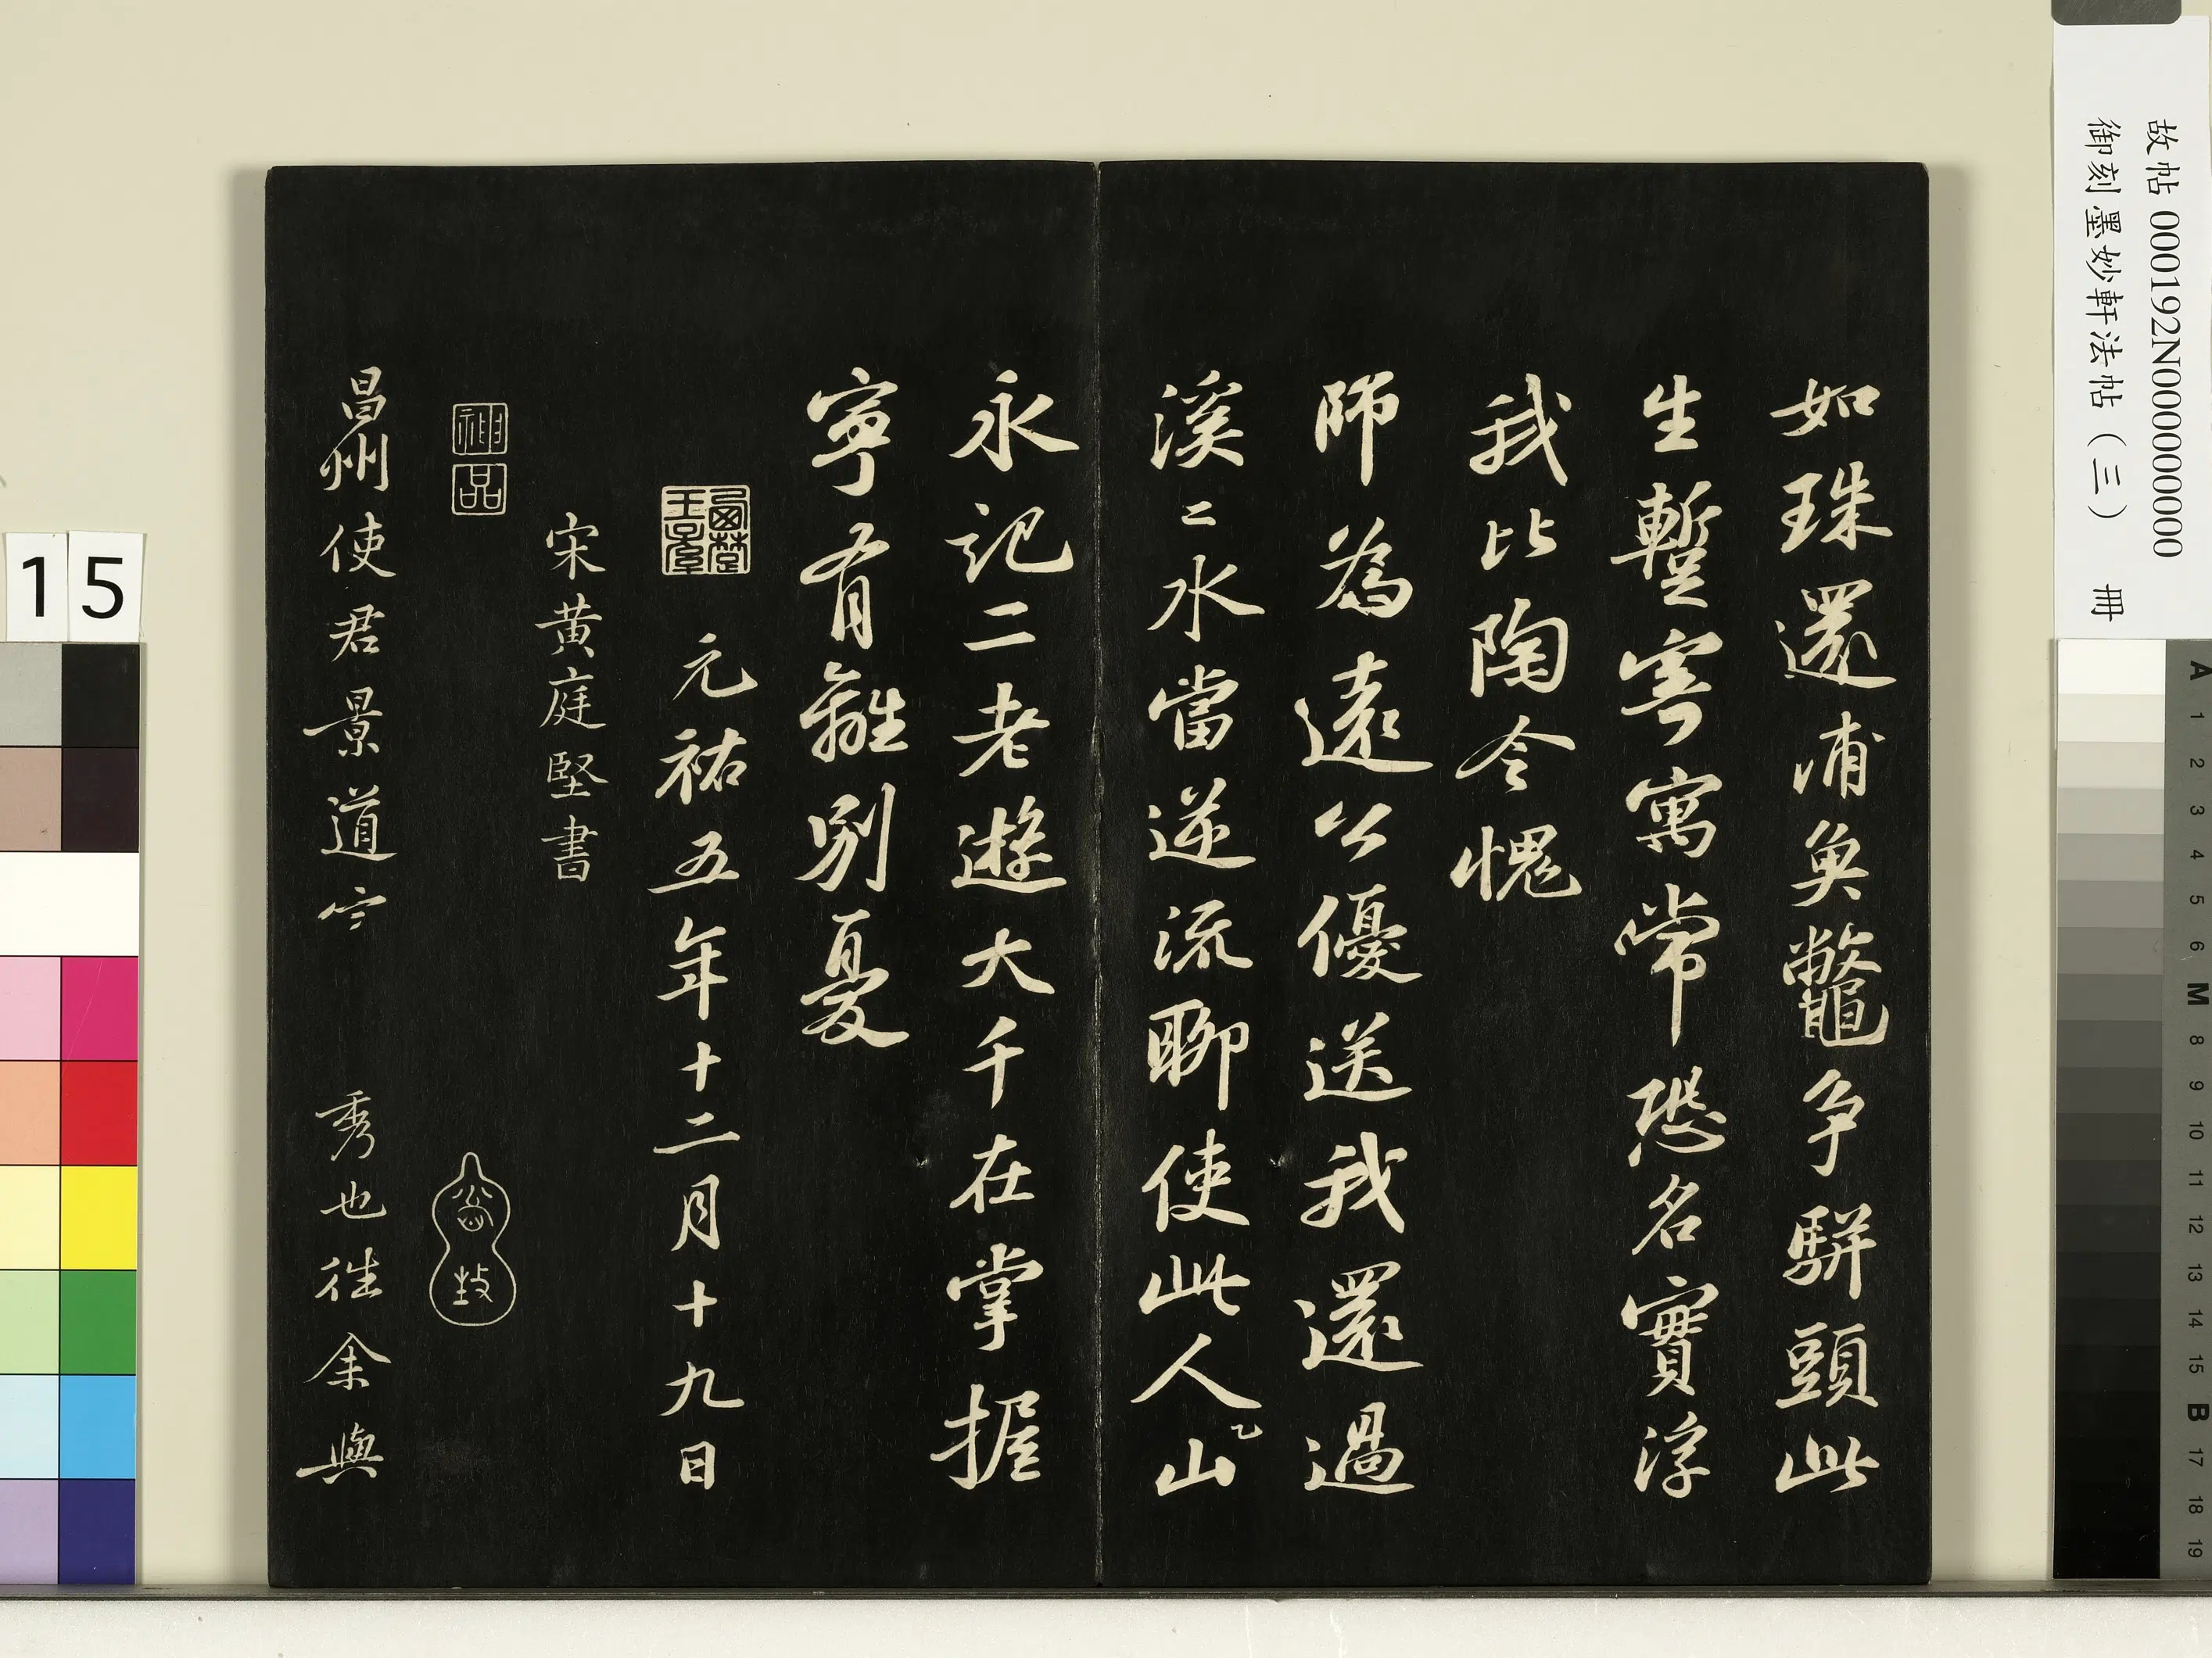 如珠還浦魚鼈爭駢頭此
生暫寄寓常恐名實浮
我比陶令愧
師為遠公優送我還過
溪二水當逆流聊使此人山
永記二老遊大千在掌握
寧有離別憂
元祐五年十二月十九日
宋黃庭堅書
神品
昌州使君景道宗秀也往余與
故帖 000192N000000000
御刻墨妙軒法帖（三） 冊
15
A 1 2 3 4 5 6 M 8 9 10 11 12 13 14 15 B 17 18 19